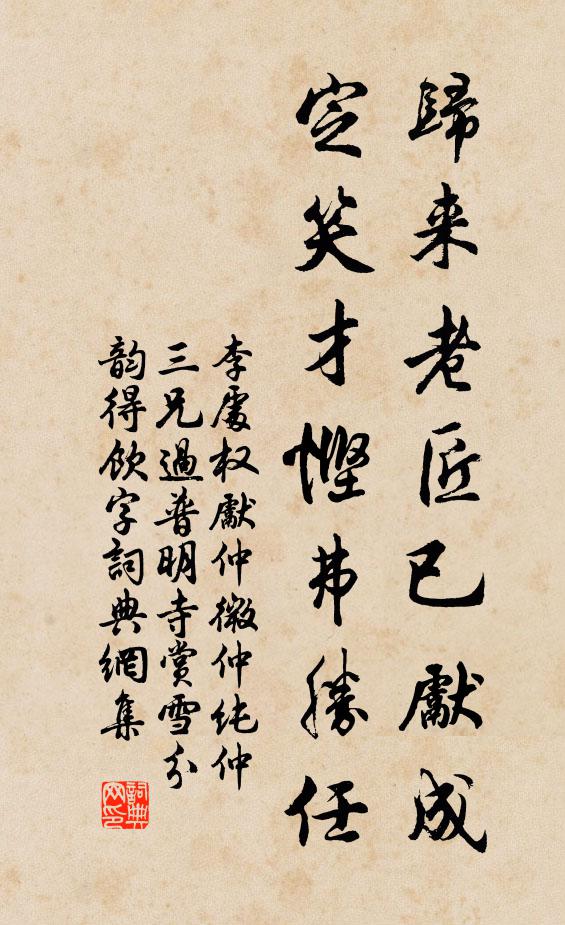 歸来老匠已獻成
定笑才慳弗勝任
李處权獻仲微仲純仲
三兄過普明寺賞雪分
韵得飲字詞典網集
詞典
网印